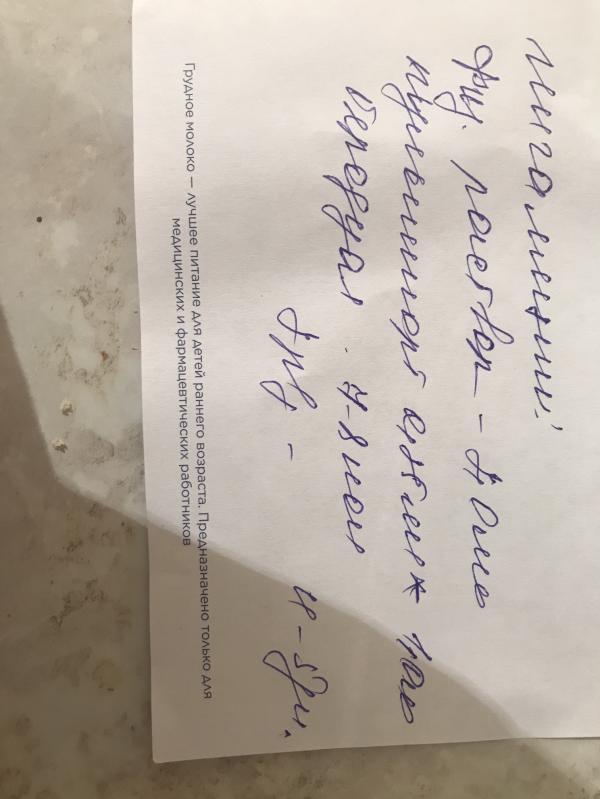 ингаляции:
физ. раствор –
пульмикорт 0,25 мг
беродуал 7-8 кап
– 4-5 дн.
Грудное молоко — лучшее питание для детей раннего возраста. Предназначено только для
медицинских и фармацевтических работников